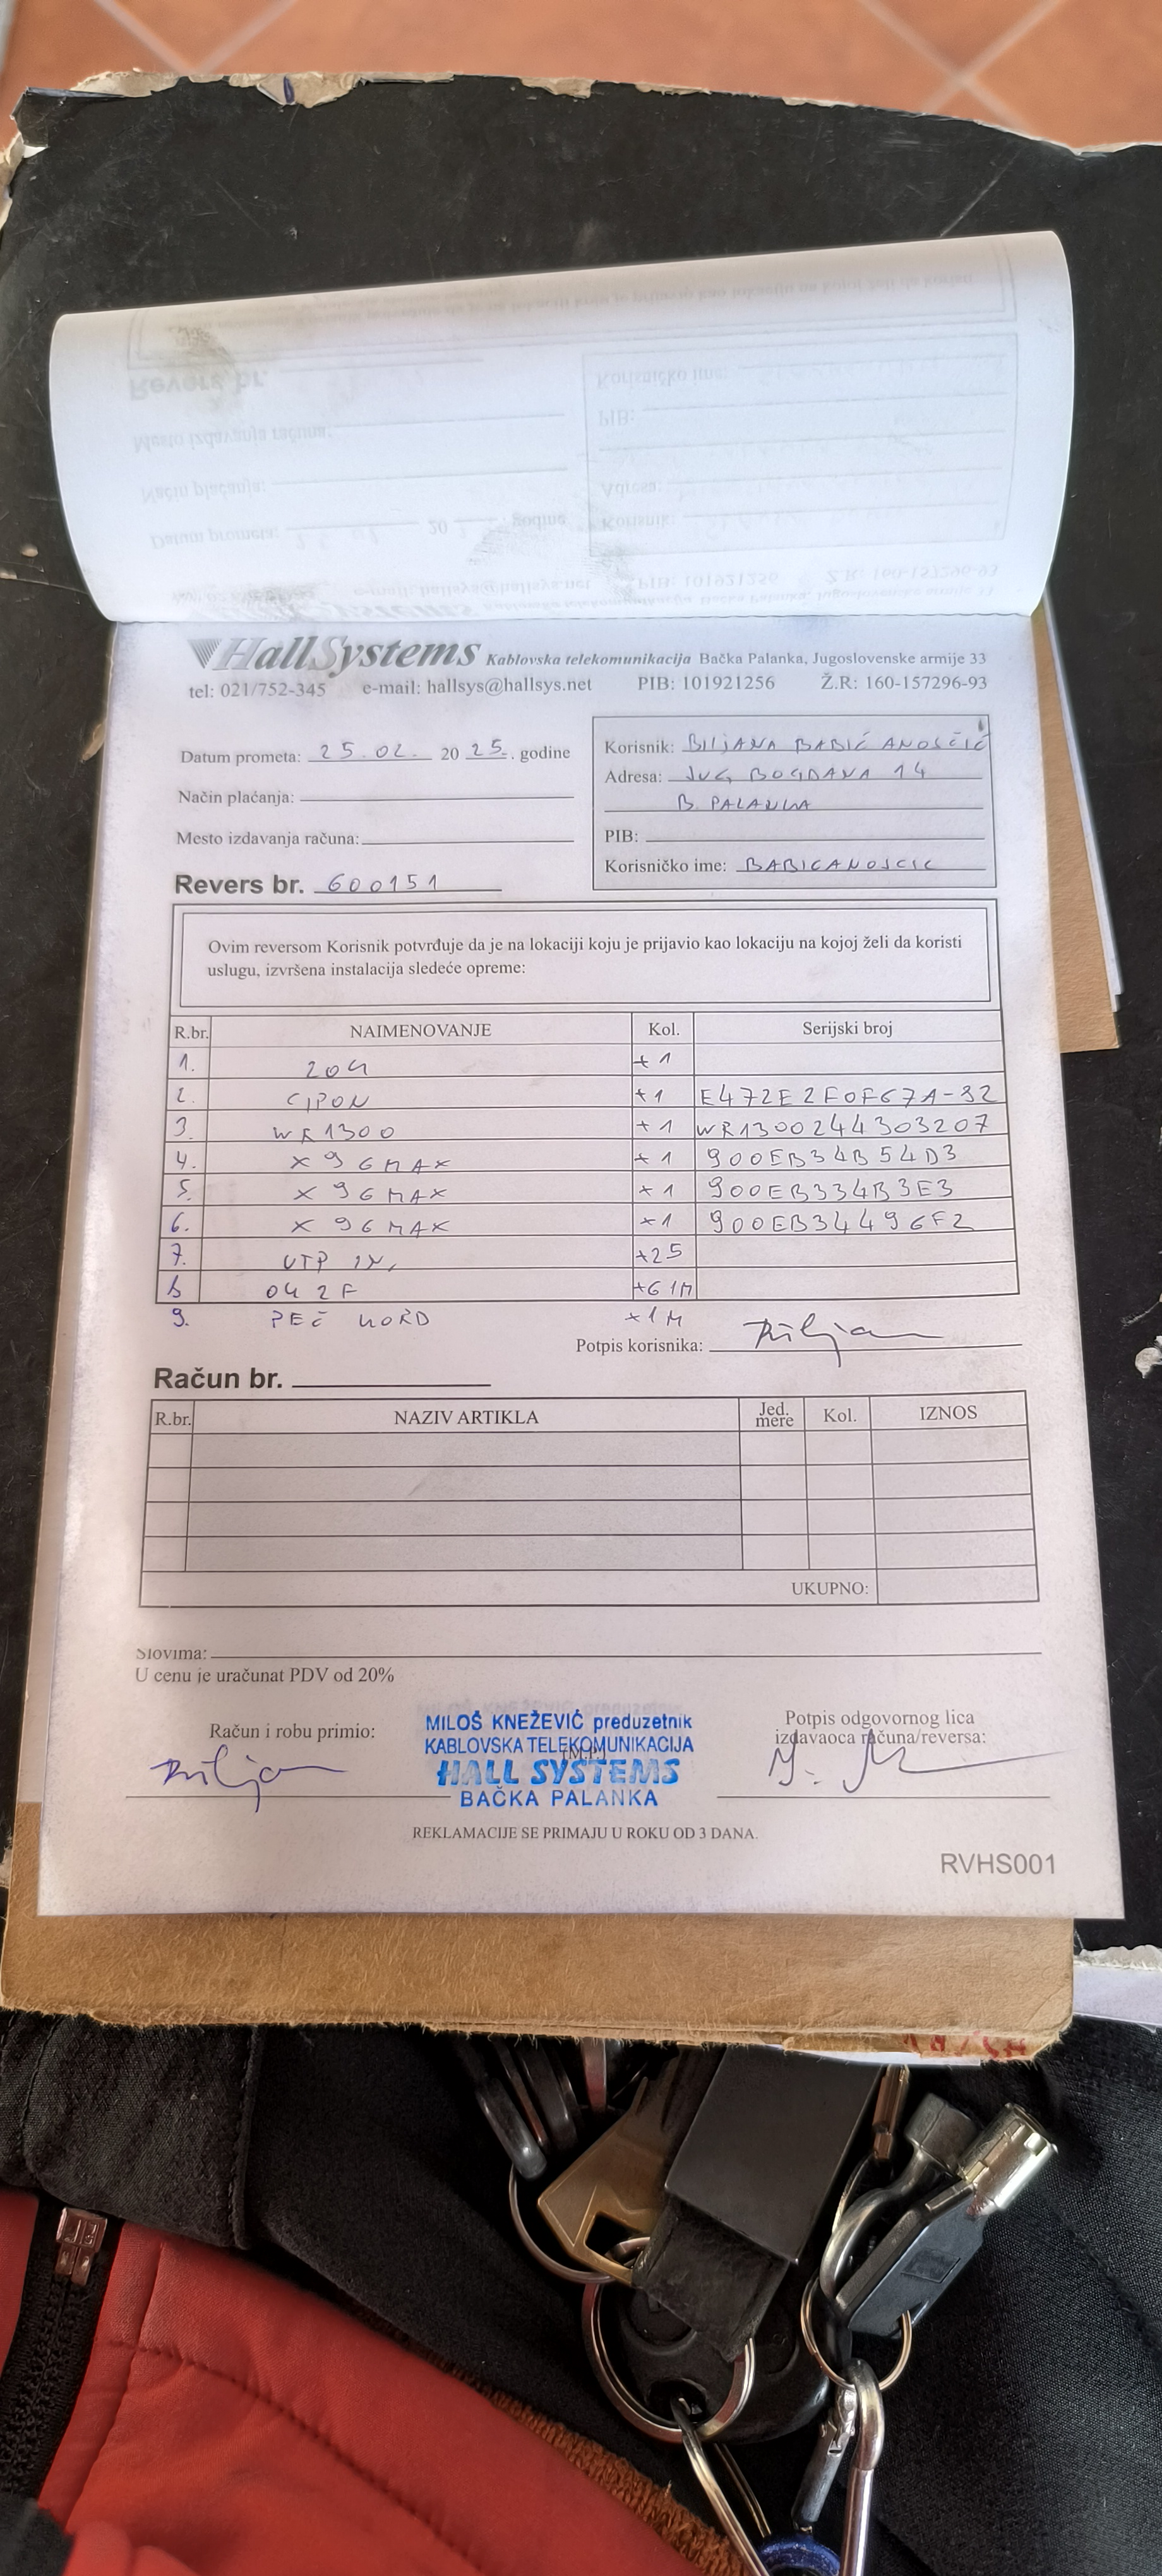 HallSystems Kablovska telekomunikacija Bačka Palanka, Jugoslovenske armije 33
tel: 021/752-345 e-mail: hallsys@hallsys.net PIB: 101921256 Ž.R: 160-157296-93
Datum prometa: 25.02. 2025. godine
Način plaćanja:
Mesto izdavanja računa:
Revers br. 600151
Korisnik: BILJANA BABIĆ ANOŠČIĆ
Adresa: JUG BOGDANA 14
B. PALANKA
PIB:
Korisničko ime: BABICANOSCIC
Ovim reversom Korisnik potvrđuje da je na lokaciji koju je prijavio kao lokaciju na kojoj želi da koristi
uslugu, izvršena instalacija sledeće opreme:
R.br. NAIMENOVANJE Kol. Serijski broj
1. +1
2. GPON +1 E472E2F0F67A-32
3. WR1300 +1 WR1300244303207
4. X96MAX +1 900EB34B54D3
5. X96MAX +1 900EB334B3E3
6. X96MAX +1 900EB34496F2
7. UTP +25
8 2F +61M
9. +1M
Potpis korisnika: Biljana
Račun br.
R.br. NAZIV ARTIKLA Jed. mere Kol. IZNOS
UKUPNO:
Slovima:
U cenu je uračunat PDV od 20%
Račun i robu primio:
Biljana
(M.P.)
MILOŠ KNEŽEVIĆ preduzetnik
KABLOVSKA TELEKOMUNIKACIJA
HALL SYSTEMS
BAČKA PALANKA
Potpis odgovornog lica
izdavaoca računa/reversa:
REKLAMACIJE SE PRIMAJU U ROKU OD 3 DANA.
RVHS001